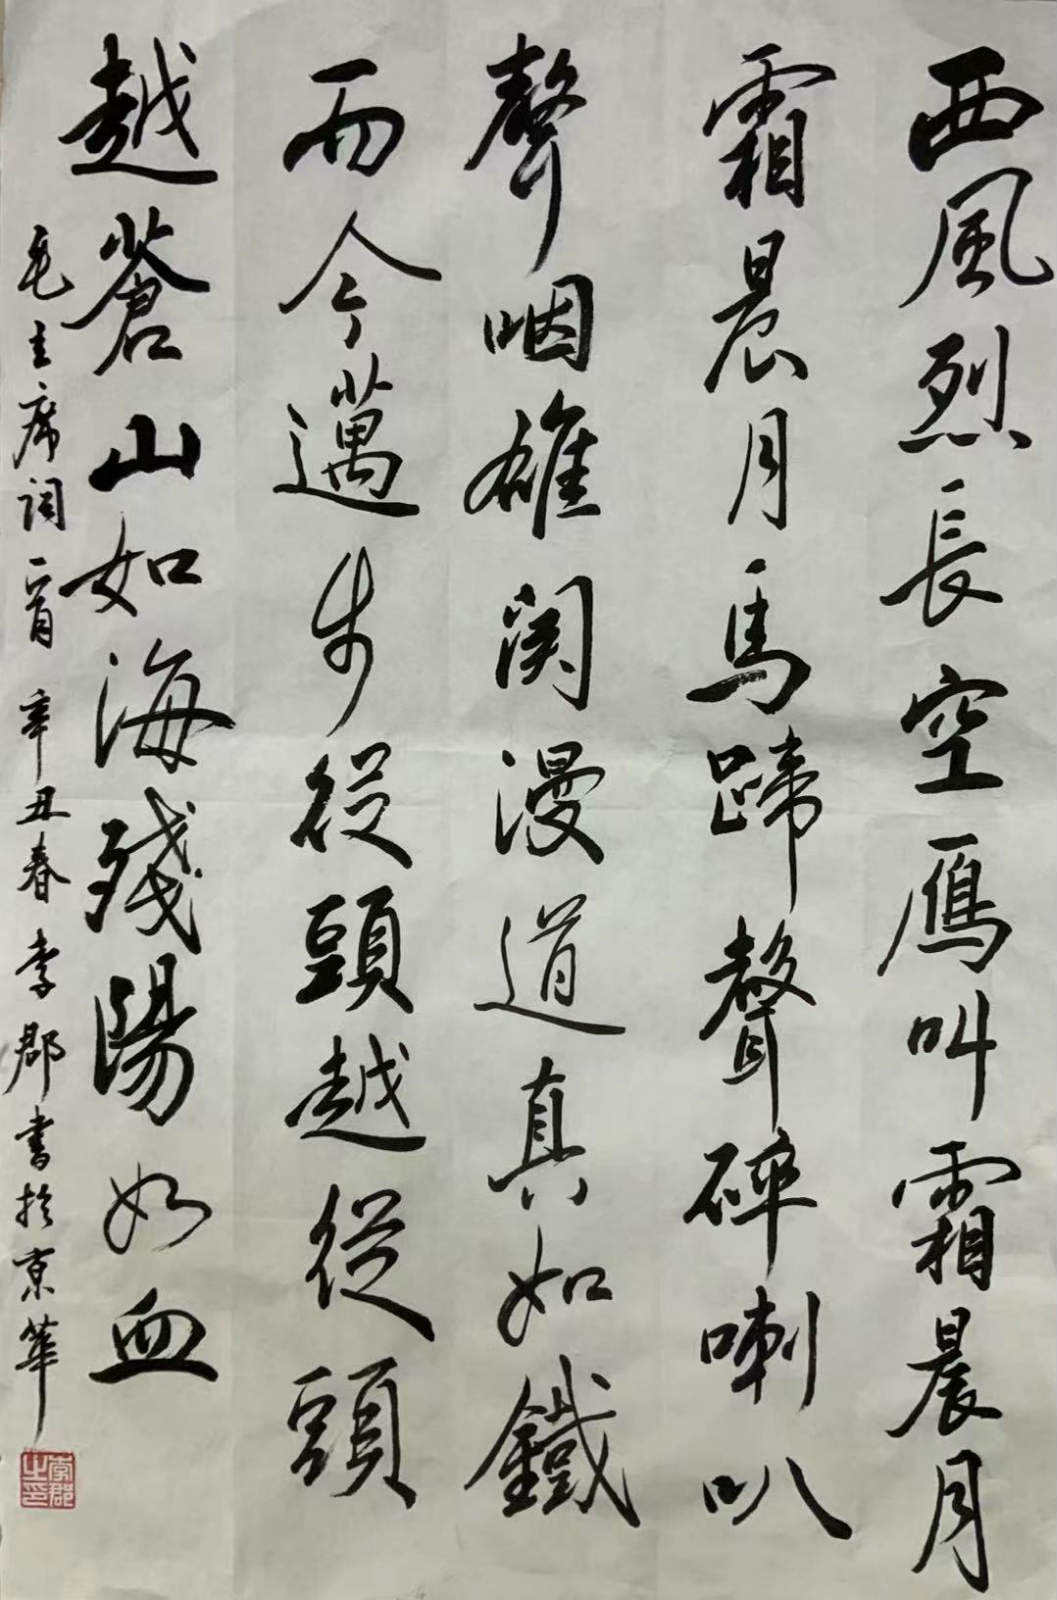 西風烈長空鴈叫霜晨月
霜晨月馬蹄聲碎喇叭
聲咽雄関漫道真如鐵
而今邁步從頭越從頭
越蒼山如海殘陽如血
毛主席詞一首 辛丑春李郡書於京華
李郡之印